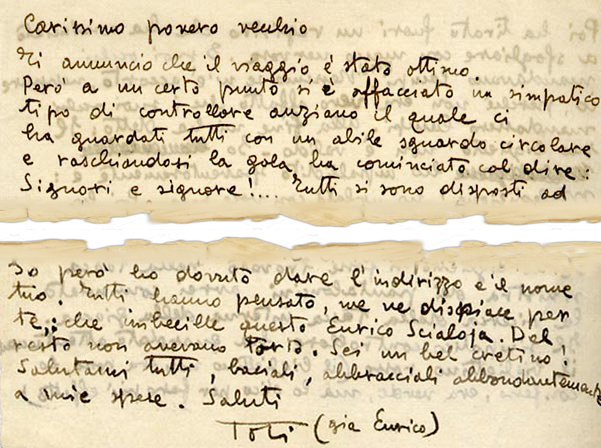 Carissimo povero vecchio
Ti annuncio che il viaggio è stato ottimo.
Però a un certo punto si è affacciato un simpatico
tipo di controllore anziano il quale ci
ha guardati tutti con un abile sguardo circolare
e raschiandosi la gola ha cominciato col dire:
Signori e signore!... Tutti si sono disposti ad
Io però ho dovuto dare l'indirizzo e il nome
tuo. Tutti hanno pensato, me ne dispiace per
te,: che imbecille questo Enrico Scialoja. Del
resto non avevano torto. Sei un bel cretino!
Salutami tutti, baciali, abbracciali abbondantemente
a mie spese. Saluti
Toti (già Enrico)